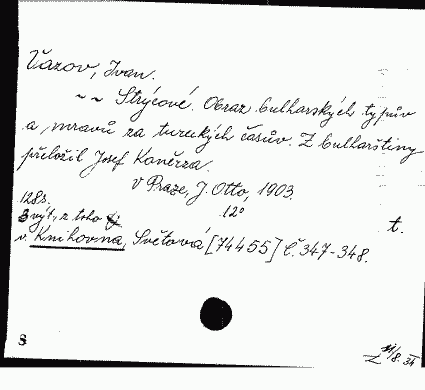 Vazov, Ivan.
~ ~ Strýcové. Obraz bulharských typův
a mravů za tureckých časův. Z bulharštiny
přeložil Josef Koněrza.
v Praze, J. Otto, 1903.
128s. 12°
3 výt., z toho t.
v. Knihovna, Světová [74455] Č. 347-348.
8